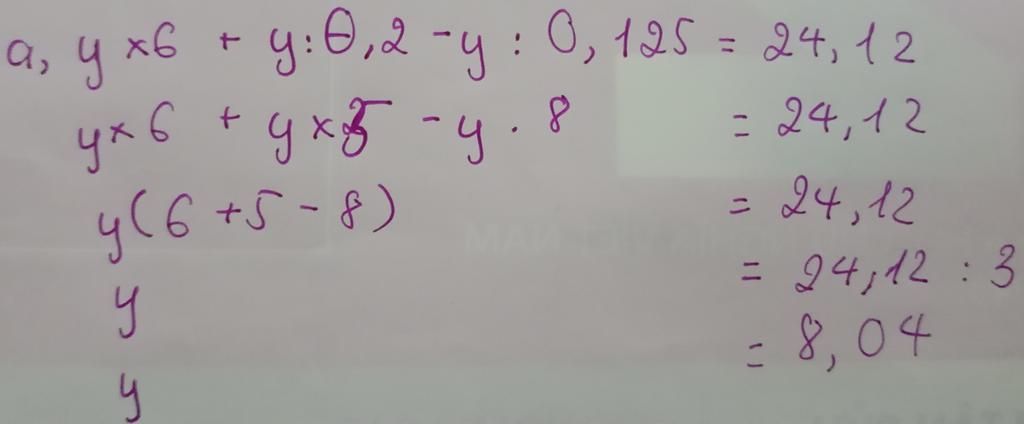 a, y × 6 + y : 0,2 - y : 0,125 = 24,12
y × 6 + y × 5 - y . 8 = 24,12
y (6 + 5 - 8) = 24,12
y = 24,12 : 3
y = 8,04